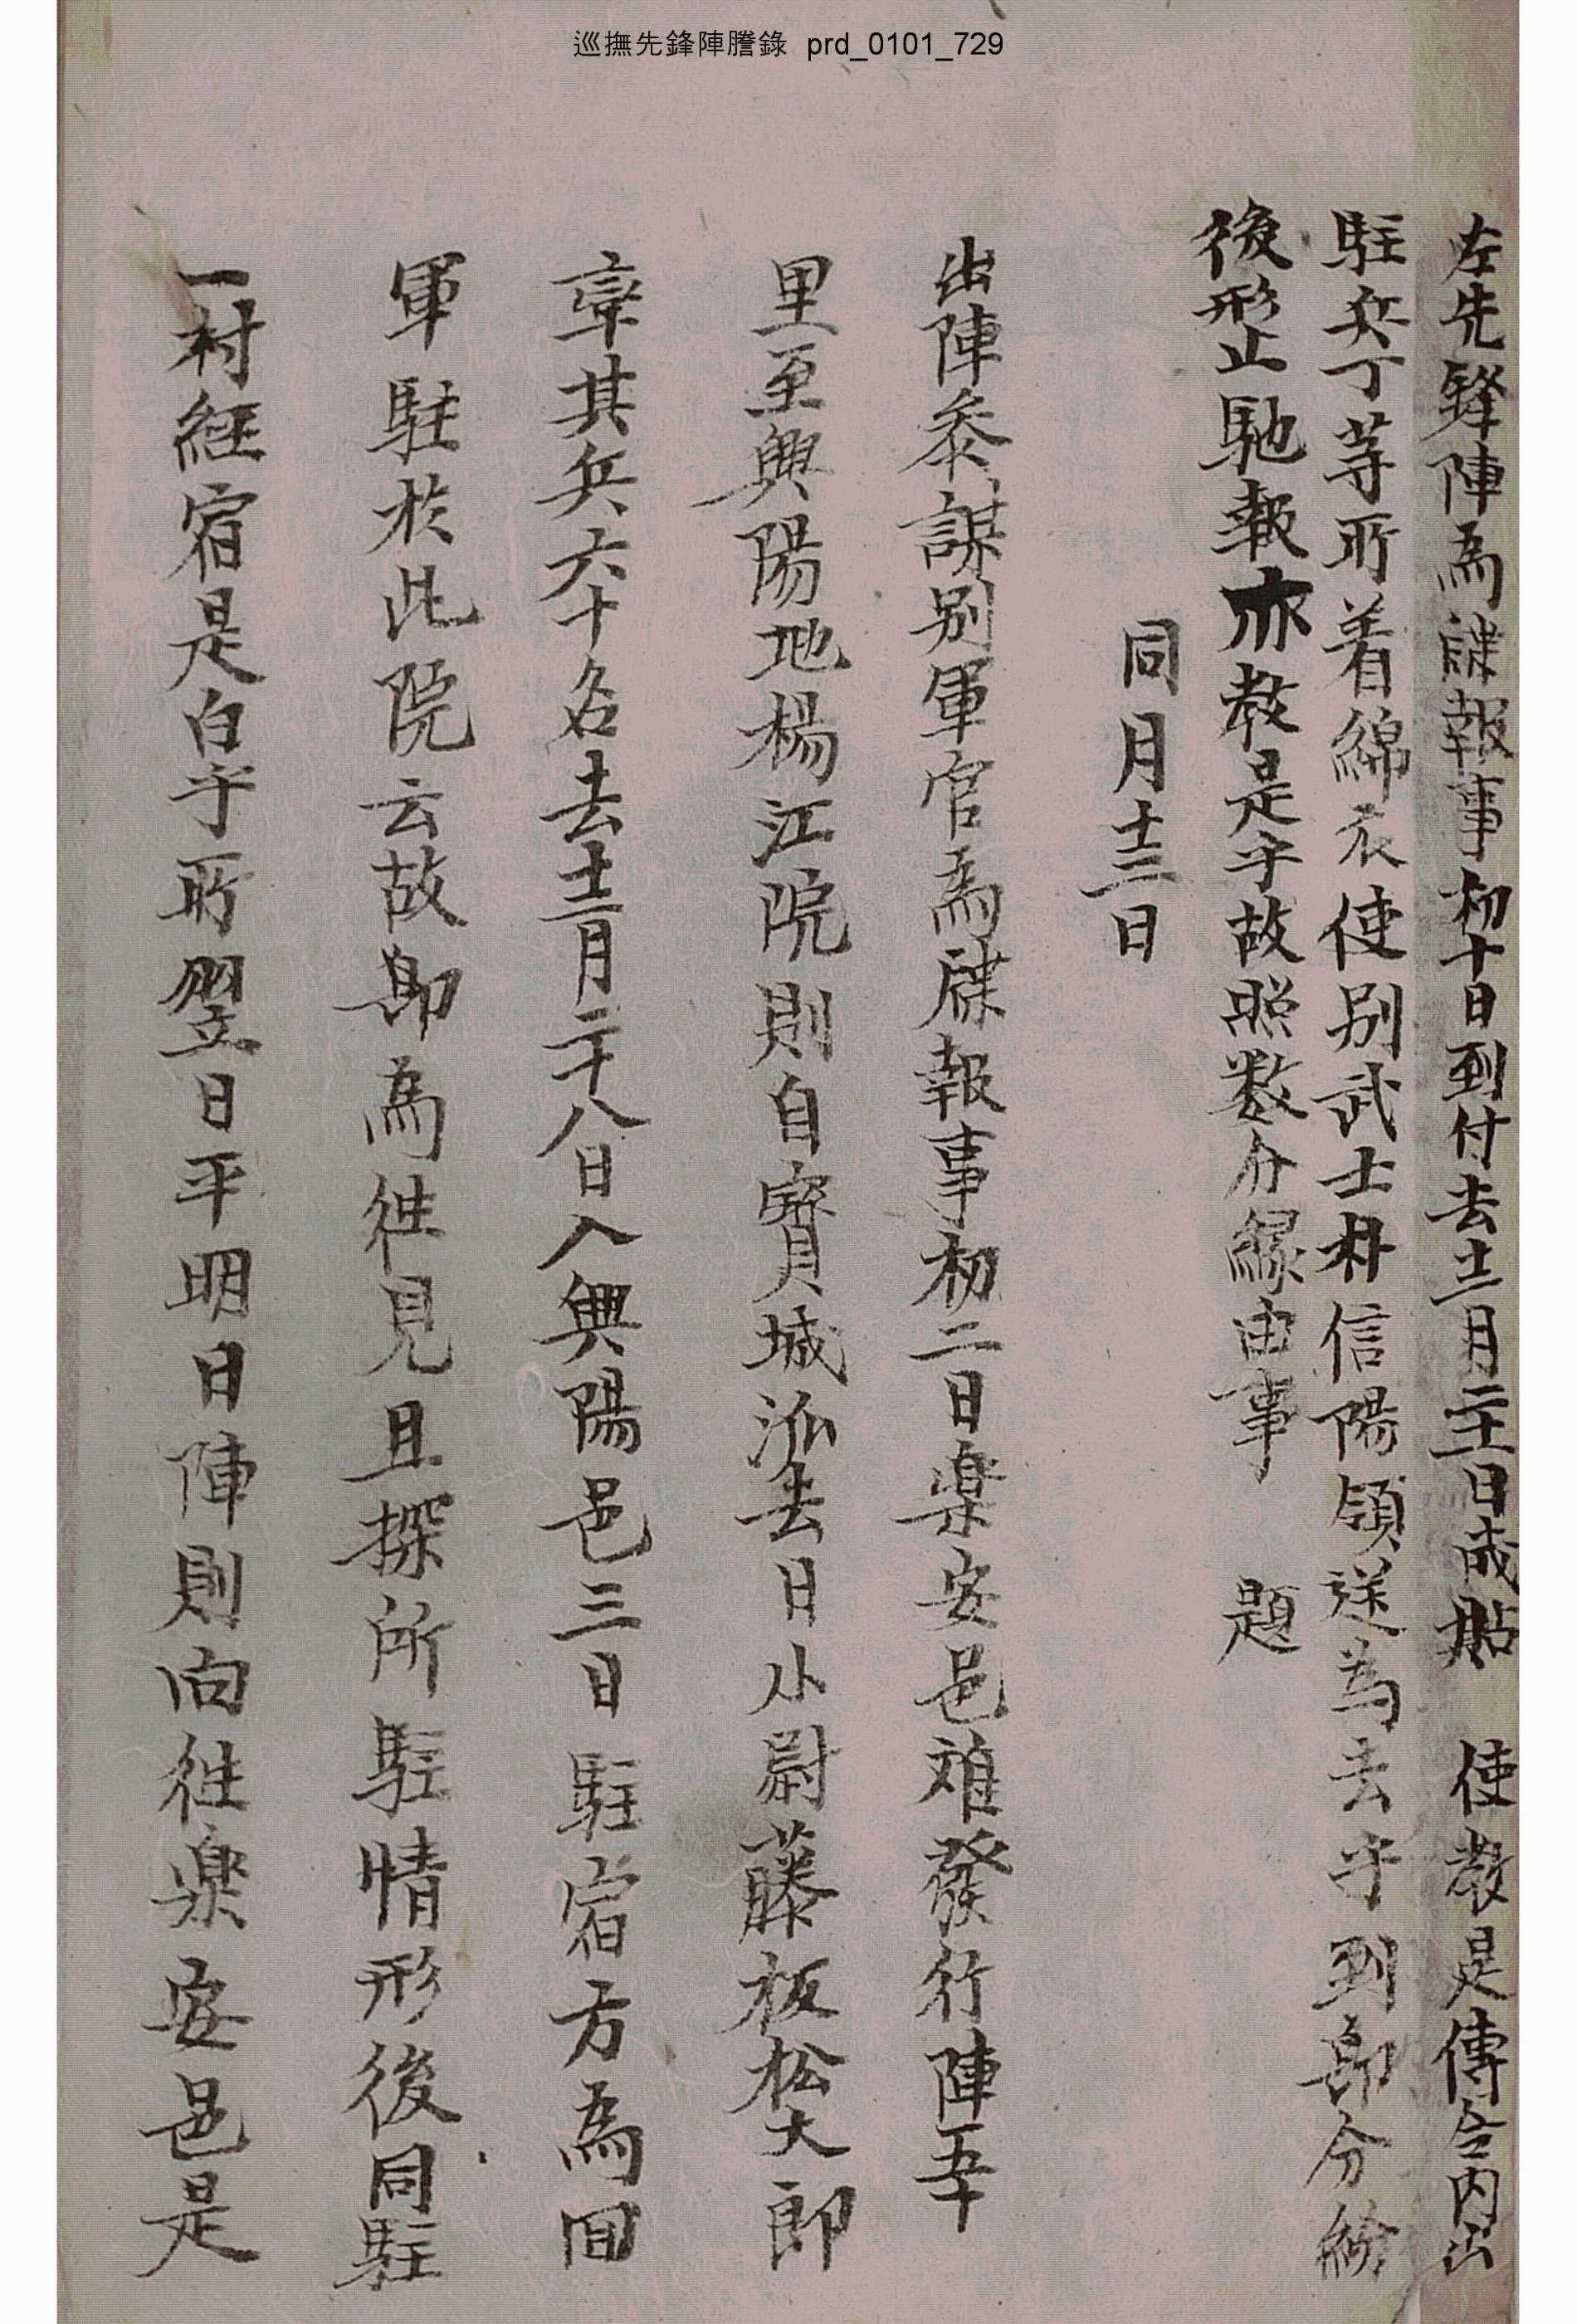 巡撫先鋒陣謄錄 prd_0101_729
左先鋒陣爲牒報事初十日到付去十二月二十一日成貼 使教是傳令內出
駐兵丁等所着綿衣使別武士朴信陽領送爲去乎到卽分給
後形止馳報亦教是乎故照數分給緣由事 題
同月十二日
出陣叅謀別軍官爲牒報事初二日樂安邑難發行陣五十
里至興陽地楊江院則自寶城派去日小尉藤板松大郎
率其兵六十名去十二月二十八日入興陽邑三日駐宿方爲回
軍駐於此院云故卽爲徃見且探所駐情形後同駐
一村經宿是白乎所翌日平明日陣則向徃樂安邑是